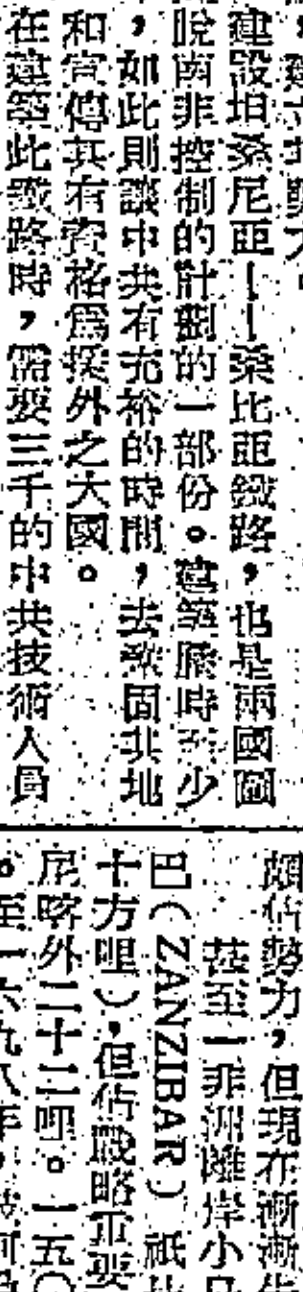 建設坦桑尼亞——桑比亞鐵路，也是兩國圖
脫南非控制的計劃的一部份。建築歷時至少
，如此則讓中共有充裕的時間，去鞏固其地
和宣傳其有資格爲援外之大國。
在建築此鐵路時，需要三千的中共技術人員
頗佔勢力，但現在漸漸
甚至一非洲離岸小
巴（ZANZIBAR）祇
十方哩），但佔戰略重要
尼喀外二十二哩。一五〇
。至一六九八年，